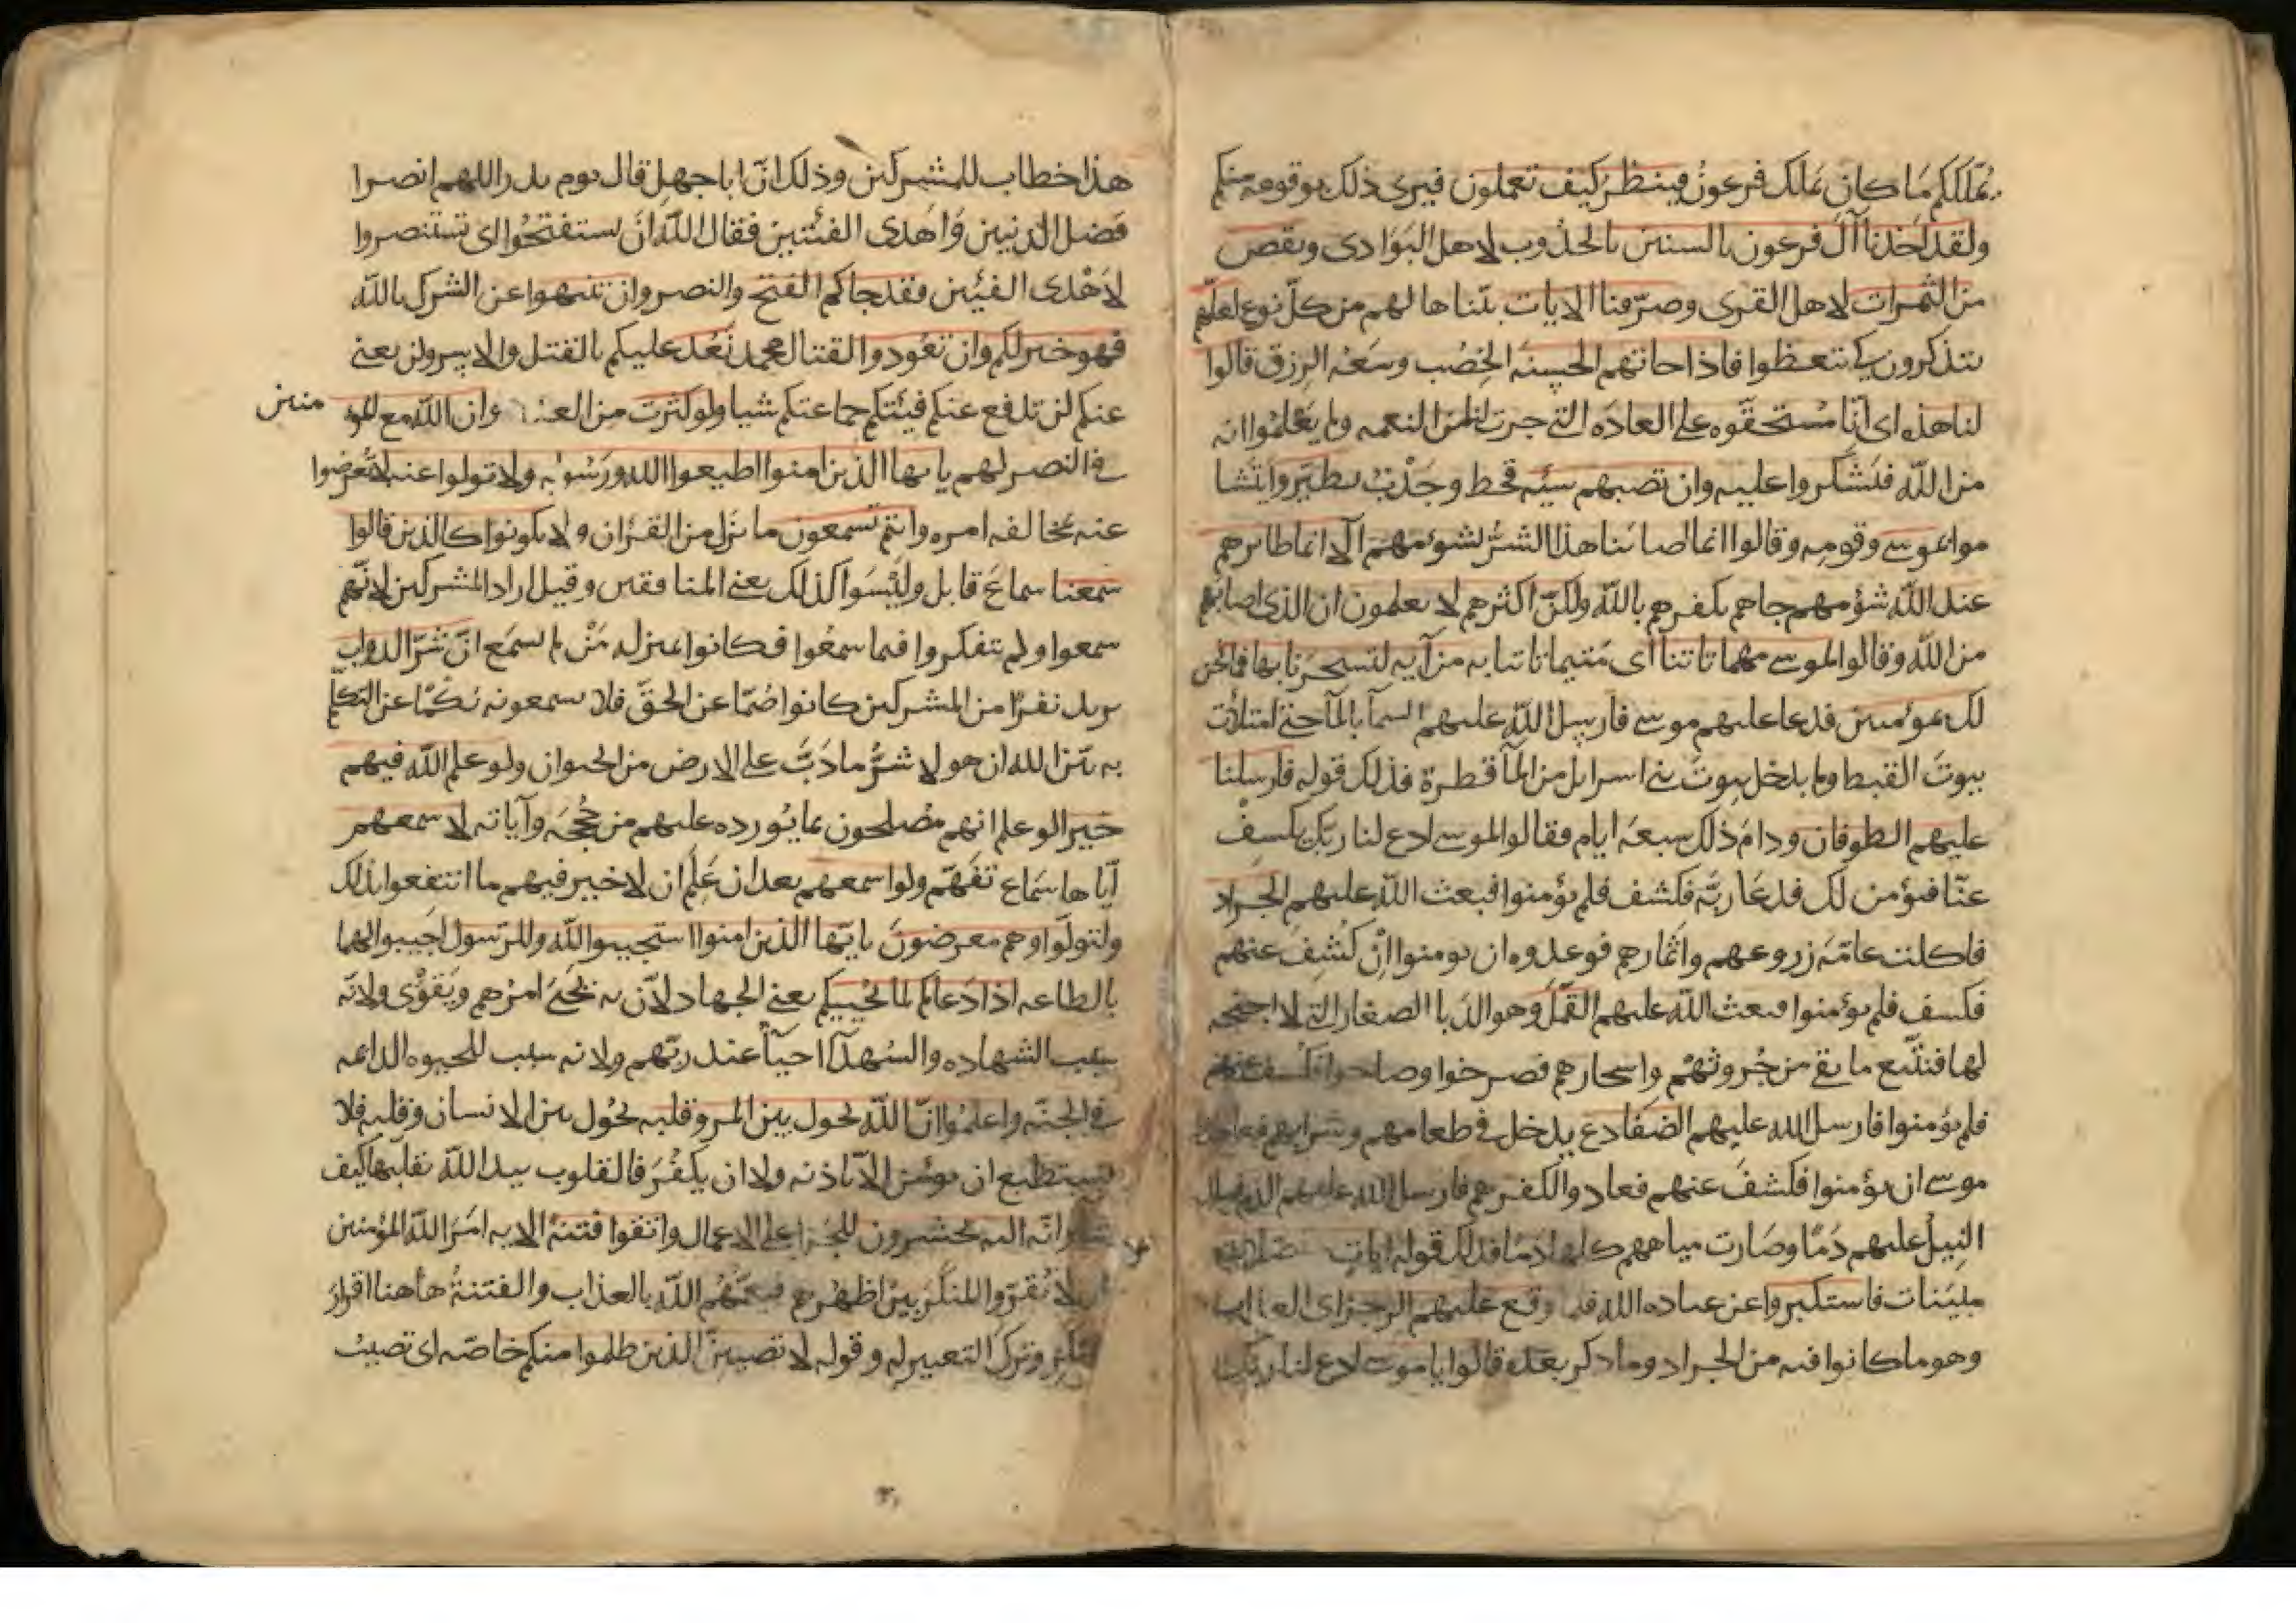 يملككم ما كان يملك فرعون فينظر كيف تعملون فيرى ذلك بوقوعه منكم
ولقد اخذنا آل فرعون بالسنين بالجدوب لاهل البوادى ونقص
من الثمرات لاهل القرى وصرفنا الايات بيناها لهم من كل نوع لعلهم
يتذكرون كى تتعظوا فاذا جاتهم الحسنة الخصب وسعة الرزق قالوا
لنا هذه اى انا مستحقوه على العاده التى جرت لنا من النعمه ولم يعلموا انه
من الله فيشكروا عليه وان تصبهم سيئه قحط وجدب يطيروا يتشا
موا بموسى وقومه وقالوا انما اصابنا هذا الشر بشؤمهم الا انما طايرهم
عند الله شؤمهم جاهم بكفرهم بالله ولكن اكثرهم لا يعلمون ان الذى اصابهم
من الله وقالوا لموسى مهما تاتنا اى متيما تاتنا به من آيه لتسحرنا بها فما نحن
لك بمؤمنين فدعا عليهم موسى فارسل الله عليهم السمآ بالمآ حتى امتلأت
بيوت القبط ولم يدخل بيوت بنى اسرايل من المآ قطرة فذلك قوله فارسلنا
عليهم الطوفان ودام ذلك سبعة ايام فقالوا لموسى ادع لنا ربك يكسف
عنا فنؤمن لك فدعا ربه فكشف فلم يؤمنوا فبعث الله عليهم الجراد
فاكلت عامة زروعهم واثمارهم فوعدوه ان يومنوا ان كشف عنهم
فكسف فلم يؤمنوا فبعث الله عليهم القمل وهو الدبا الصغار التى لا اجنحه
لها فتتبع ما بقى من حروثهم واسجارهم فصرخوا وصاحوا فكسف عنهم
فلم يؤمنوا فارسل الله عليهم الضفادع يدخل فى طعامهم وشرابهم فعاهدوا
موسى ان يؤمنوا فكشف عنهم فعادوا لكفرهم فارسل الله عليهم الدم فسال
النيل عليهم دما وصارت مياههم كلها دما فذلك قوله ايات
مبينات فاستكبروا عن عباده الله فلما وقع عليهم الرجز اى العذاب
وهو ما كانوا فيه من الجراد وما ذكر بعده قالوا يا موسى ادع لنا ربك
هذا خطاب للمشركين وذلك ان ابا جهل قال يوم بدر اللهم انصر ا
فضل الدينين واهدى الفئتين فقال الله ان تستفتحوا اى تستنصروا
لاهدى الفئين فقد جاكم الفتح والنصر وان تنتهوا عن الشرك بالله
فهو خير لكم وان تعودوا لقتال محمد نعد عليكم بالقتل والاسر ولن يعنى
عنكم لن تدفع عنكم فيئتكم جماعتكم شيا ولو كثرت من العدد وان الله مع المو منين
فى النصر لهم يا يها الذين امنوا اطيعوا الله ورسوله ولا تولوا عنه لا تعرضوا
عنه بمخالفه امره وانتم تسمعون ما نزل من القرٔان ولا يكونوا كالذين قالوا
سمعنا سماع قابل وليسوا كذلك يعنى المنافقين وقيل اراد المشركين لانهم
سمعوا ولم يتفكروا فيما سمعوا فكانوا بمنزله من لم يسمع ان شر الدواب
يريد نفرا من المشركين كانوا صما عن الحق فلا يسمعونه بكما عن التكلم
به بين الله ان هولا شر ما دب على الارض من الحيوان ولو علم الله فيهم
خيرا لو علم انهم مصلحون بما يورده عليهم من حججه وآياته لاسمعهم
اياها سماع تفهم ولو اسمعهم بعد ان علم ان لا خير فيهم ما انتفعوا بذلك
ولتولوا وهم معرضون يا يها الذين امنوا استجيبوا لله وللرسول اجيبوا لهما
بالطاعه اذا دعاكم لما يحييكم يعنى الجهاد لان به يحيى امرهم ويقوى ولانه
سبب الشهاده والشهدآ احيآ عند ربهم ولانه سبب للحيوه الدايمه
فى الجنه واعلموا ان الله يحول بين المر وقلبه يحول بين الانسان وقلبه فلا
يستطيع ان يومن الا باذنه ولا ان يكفر فالقلوب بيد الله يقلبها كيف
يشآ وانه اليه تحشرون للجزا على الاعمال واتقوا فتنة الايه امر الله المؤمنين
ان لا يقروا المنكر بين اظهرهم فيعمهم الله بالعذاب والفتنة هاهنا اقرار
المنكر وترك التعيير له وقوله لا تصيبن الذين ظلموا منكم خاصه اى تصيب